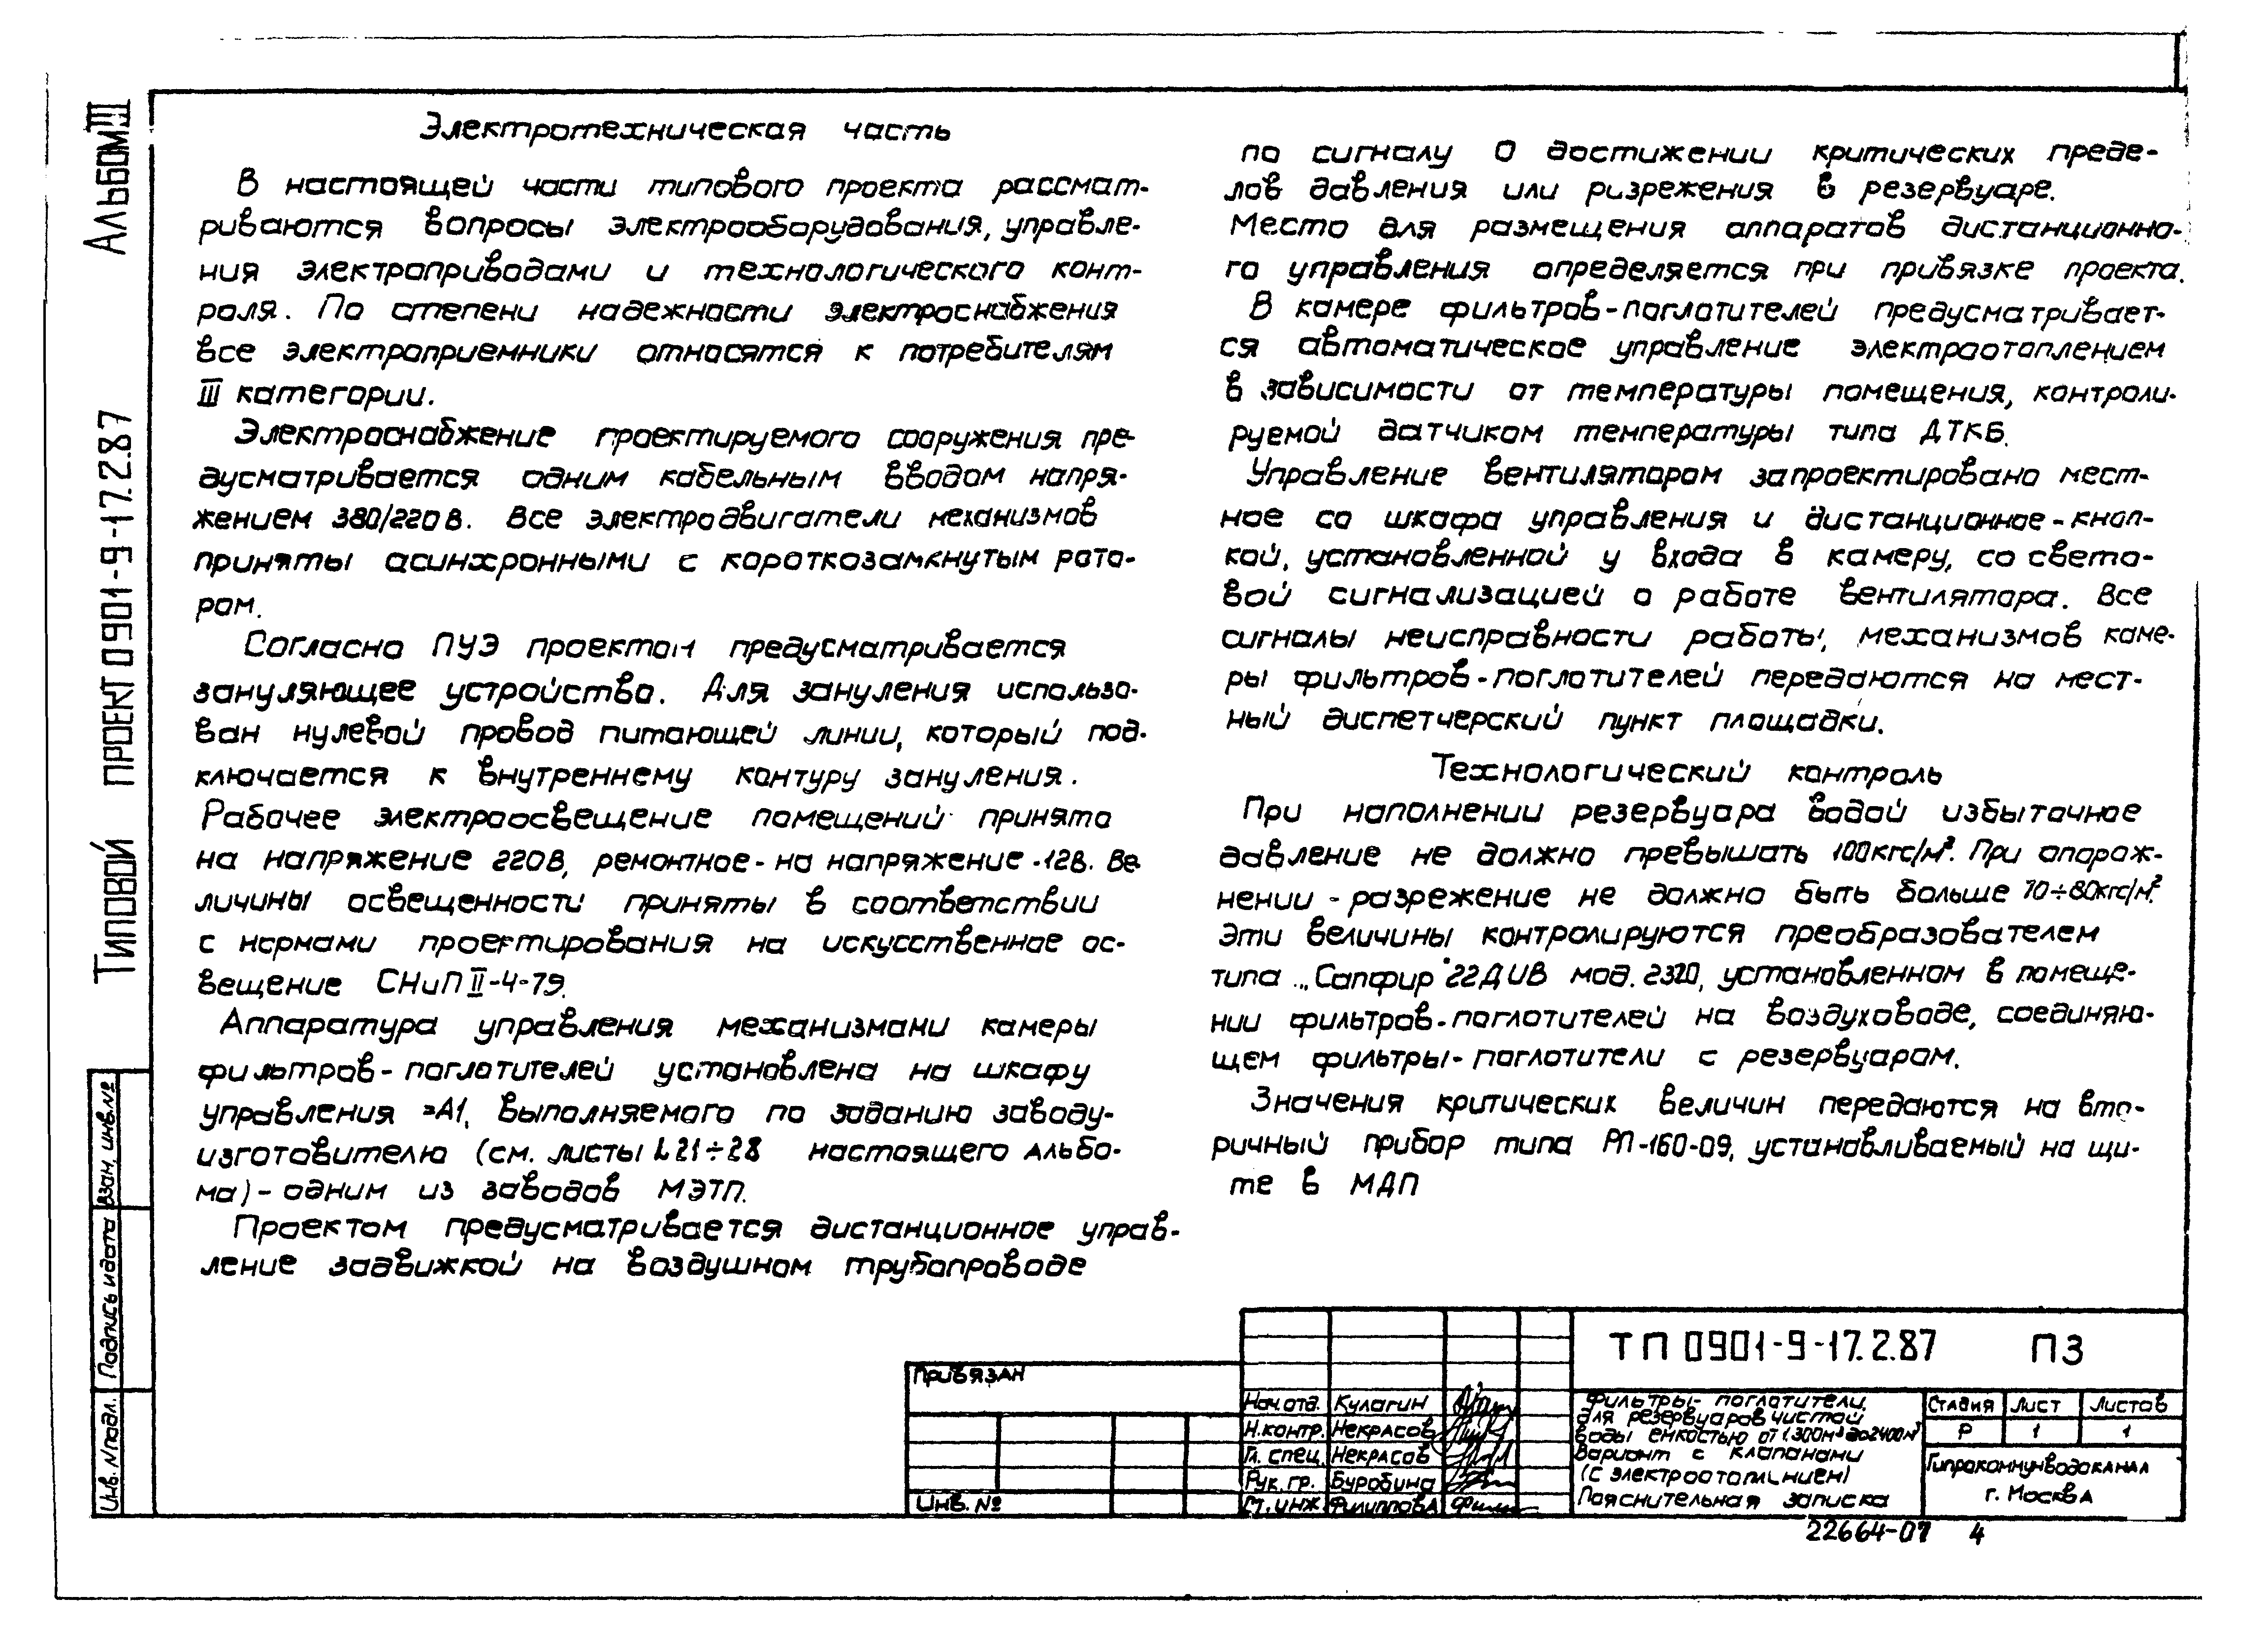 Альбом III
Типовой проект 0901-9-17.2.87
Электротехническая часть
В настоящей части типового проекта рассмат-
риваются вопросы электрооборудования, управле-
ния электроприводами и технологического конт-
роля. По степени надежности электроснабжения
все электроприемники относятся к потребителям
III категории.
Электроснабжение проектируемого сооружения пре-
дусматривается одним кабельным вводом напря-
жением 380/220В. Все электродвигатели механизмов
приняты асинхронными с короткозамкнутым рото-
ром.
Согласно ПУЭ проектом предусматривается
зануляющее устройство. Для зануления использо-
ван нулевой провод питающей линии, который под-
ключается к внутреннему контуру зануления.
Рабочее электроосвещение помещений принято
на напряжение 220В, ремонтное - на напряжение -12В. Ве-
личины освещенности приняты в соответствии
с нормами проектирования на искусственное ос-
вещение СНиП II-4-79.
Аппаратура управления механизмами камеры
фильтров-поглотителей установлена на шкафу
управления =А1, выполняемого по заданию заводу-
изготовителю (см. листы 21÷28 настоящего альбо-
ма) - одним из заводов МЭТП.
Проектом предусматривается дистанционное управ-
ление задвижкой на воздушном трубопроводе
по сигналу о достижении критических преде-
лов давления или ризрежения в резервуаре.
Место для размещения аппаратов дистанционно-
го управления определяется при привязке проекта.
В камере фильтров-поглотителей предусматривает-
ся автоматическое управление электроотоплением
в зависимости от температуры помещения, контроли-
руемой датчиком температуры типа ДТКБ.
Управление вентилятором запроектировано мест-
ное со шкафа управления и дистанционное - кноп-
кой, установленной у входа в камеру, со свето-
вой сигнализацией о работе вентилятора. Все
сигналы неисправности работы, механизмов каме-
ры фильтров-поглотителей передаются на мест-
ный диспетчерский пункт площадки.
Технологический контроль
При наполнении резервуара водой избыточное
давление не должно превышать 100кгс/м². При опорож-
нении - разрежение не должно быть больше 70÷80кгс/м²
Эти величины контролируются преобразователем
типа „Сапфир" 22ДИВ мод. 2320, установленном в помеще-
нии фильтров-поглотителей на воздуховоде, соединяю-
щем фильтры-поглотители с резервуаром.
Значения критических величин передаются на вто-
ричный прибор типа РП-160-09, устанавливаемый на щи-
те в МДП
Взам. инв.№
Подпись и дата
Инв. № подл.
Привязан
Инв. №
Нач.отд. Кулагин
Н.контр. Некрасов
Гл. спец. Некрасов
Рук. гр. Буробина
Ст. инж. Филиппова
ТП 0901-9-17.2.87 ПЗ
Фильтры-поглотители
для резервуаров чистой
воды емкостью от 1300м³ до 2400м³
Вариант с клапанами
(с электроотоплением)
Пояснительная записка
Стадия Лист Листов
Р 1 1
Гипрокоммунводоканал
г. Москва
22664-07 4